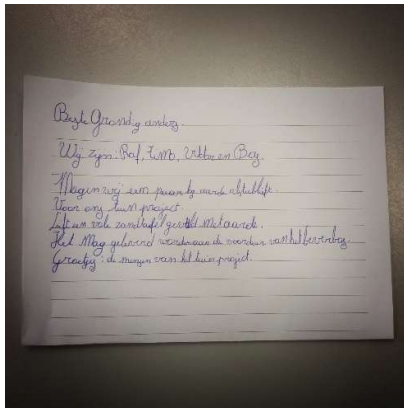 Beste Grondig anders.
Wij zijn: Raf, Timo, Viktor en Boy.
Mogen wij een paar kg aarde alstublieft.
Voor ons tuin project
een vole zandtafel gevuld met aarde.
Het Mag geleverd worden aan de voordeur van het beverbos.
Groetjes: de mensen van het tuin project.